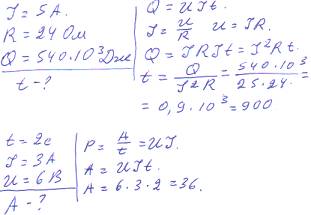 J = 5A.
R = 24 Ом
Q = 540·10³Дж
t - ?
Q = UJt.
J = U/R   U = JR.
Q = JRJt = J²Rt.
t = Q/J²R = 540·10³/25·24 =
= 0,9·10³ = 900
t = 2с
J = 3A
U = 6В
A - ?
P = A/t = UJ.
A = UJt.
A = 6·3·2 = 36.